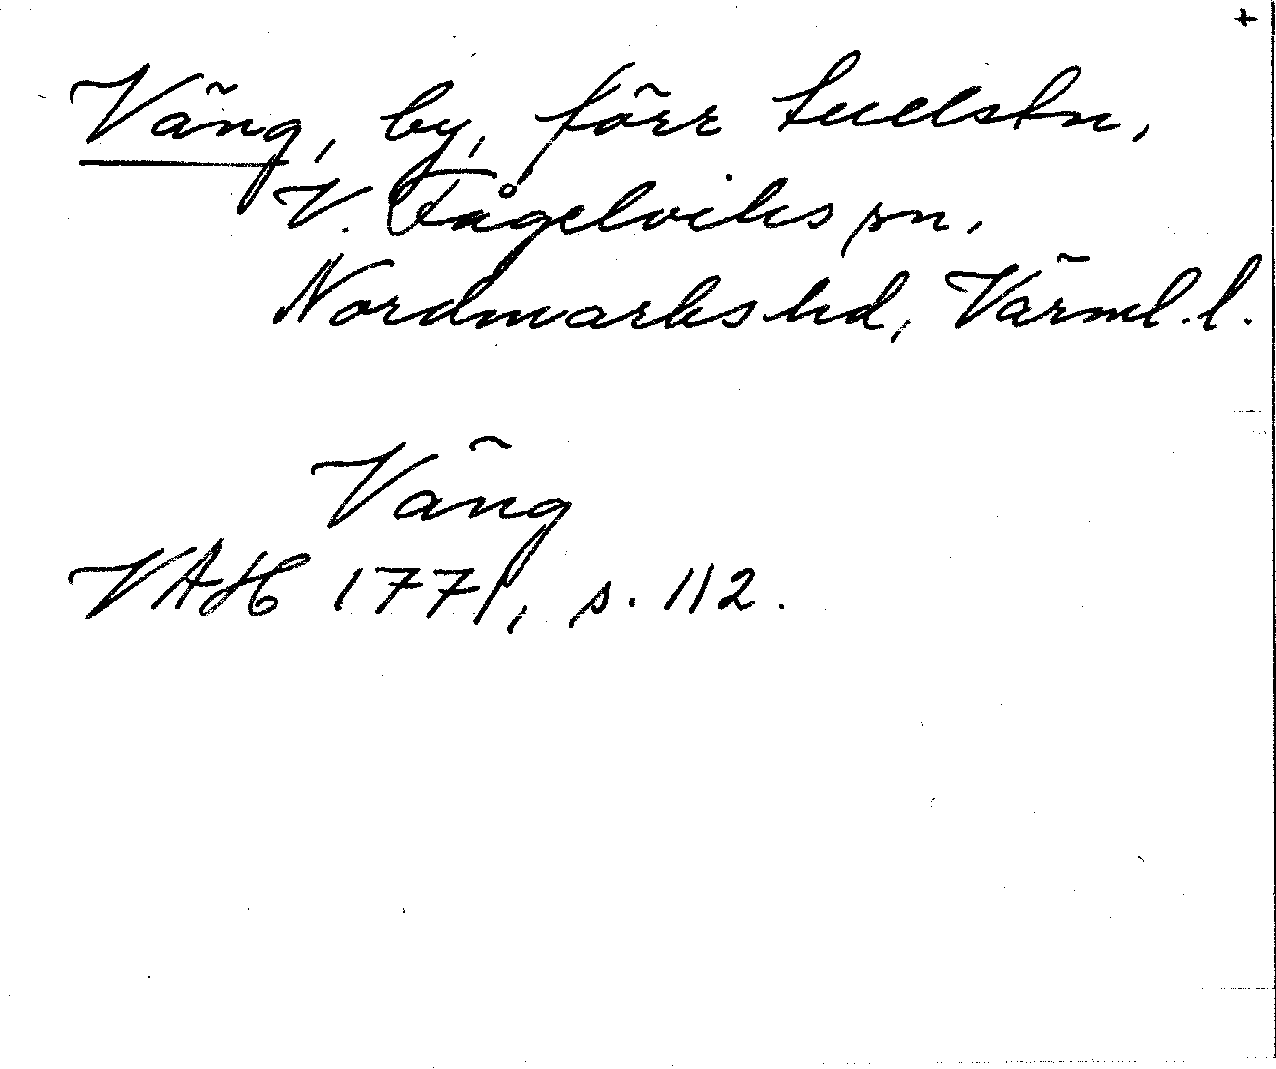 +
Väng, by, förr
V. Fågelviks sn,
Nordmarks hd, Värml. l.
Väng
VAH 1771, s. 112.